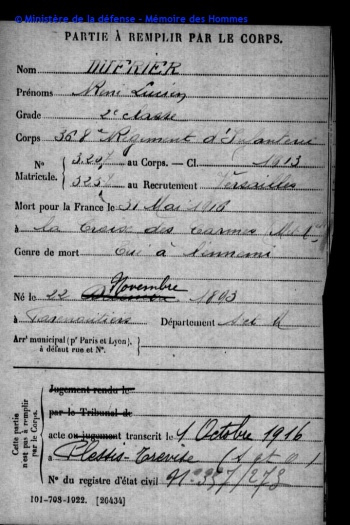 © Ministère de la défense - Mémoire des Hommes
PARTIE À REMPLIR PAR LE CORPS.
Nom DUFRIER
Prénoms René Lucien
Grade 2e classe
Corps 368e Régiment d'Infanterie
N° 3.207 au Corps. — Cl. 1913
Matricule. 3257 au Recrutement Versailles
Mort pour la France le 31 Mai 1916
à la Croix des Carmes
Genre de mort Tué à l'ennemi
Novembre
Né le 22 1893
à Département
Arrt municipal (pr Paris et Lyon),
à défaut rue et N°.
Cette partie
n'est pas à remplir
par le Corps.
Jugement rendu le
par le Tribunal de
acte ou jugement transcrit le 1 Octobre 1916
à Plessis-Trevise (S et O)
N° du registre d'état civil N° 337/278
101-708-1922. [26434]